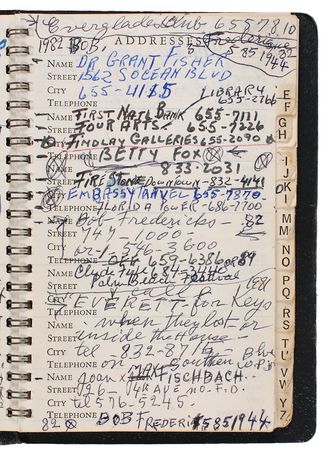 Everglades Club 655 7810
1982 BOB, ADDRESSES Frederics
585 1944
NAME DR GRANT FISHER
STREET 1362 S OCEAN BLVD
CITY 655-4185 LIBRARY
TELEPHONE 655-2766
NAME FIRST NATL BANK 655-7111
STREET FOUR ARTS 655-7226
CITY FINDLAY GALLERIES 655-2090
TELEPHONE BETTY FOX
NAME 833-2031
STREET FIRESTONE Downtown-832-4141
CITY EMBASSY TRAVEL 655-7870
TELEPHONE FLORIDA 686-7700
NAME Bob Fredericks- 82
STREET 747 1000-
CITY 546-3600
TELEPHONE OFF 659-6386 or 89
NAME Clyde 746 684-3440
STREET Palm Beach Festival
CITY 1981
TELEPHONE EVERETT for Keys
NAME when they lost or
STREET inside the house-
CITY tel - 832-
TELEPHONE on Southern Blv W.P.B
NAME Joan FISCHBACH
STREET AVE NO. F.D.
CITY tel 576-5245
TELEPHONE
82 BOB FREDERI 585 1944
EF
GH
IJ
KL
MM
NO
PQ
RS
TU
VW
YZ